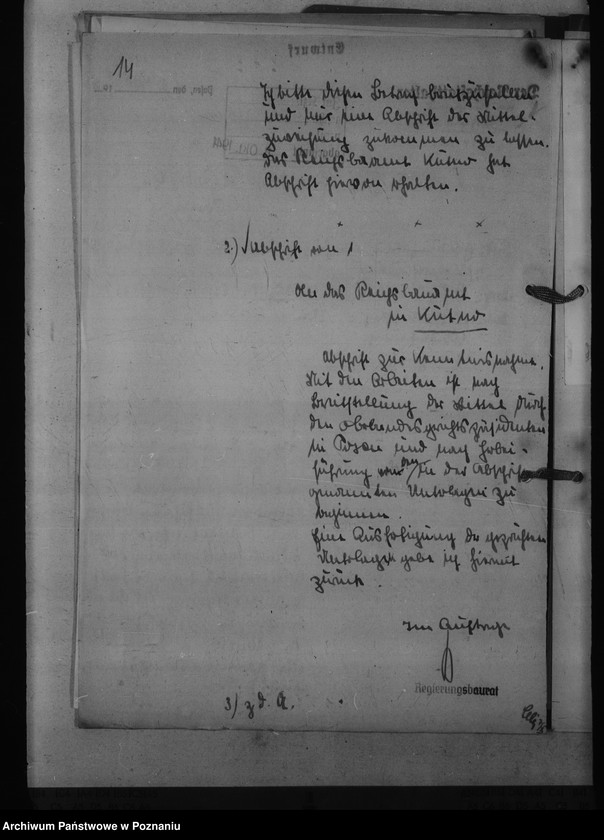 14
Ich bitte diesen Betrag bereitzustellen
und mir eine Abschrift der Mittel-
zuweisung zukommen zu lassen.
Das Reichsbauamt Kutno hat
Abschrift hiervon erhalten.
2.) Abschrift von 1
An das Reichsbauamt
in Kutno
Abschrift zur Kenntnisnahme.
Mit den Arbeiten ist nach
Bereitstellung der Mittel durch
den Oberlandesgerichtspräsidenten
in Posen und nach Herbei-
führung der in der Abschrift
genannten Unterlagen zu
beginnen.
Eine Ausfertigung der geprüften
Unterlagen gebe ich hiermit
zurück.
Im Auftrage
Regierungsbaurat
3) z.d.A.
Archiwum Państwowe w Poznaniu